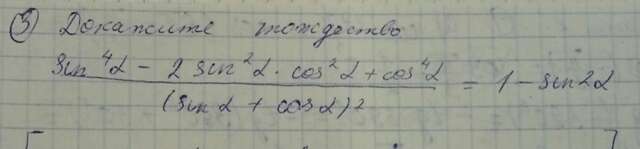 3) Докажите тождество
sin⁴α − 2 sin²α · cos²α + cos⁴α / (sin α + cos α)² = 1 − sin2α